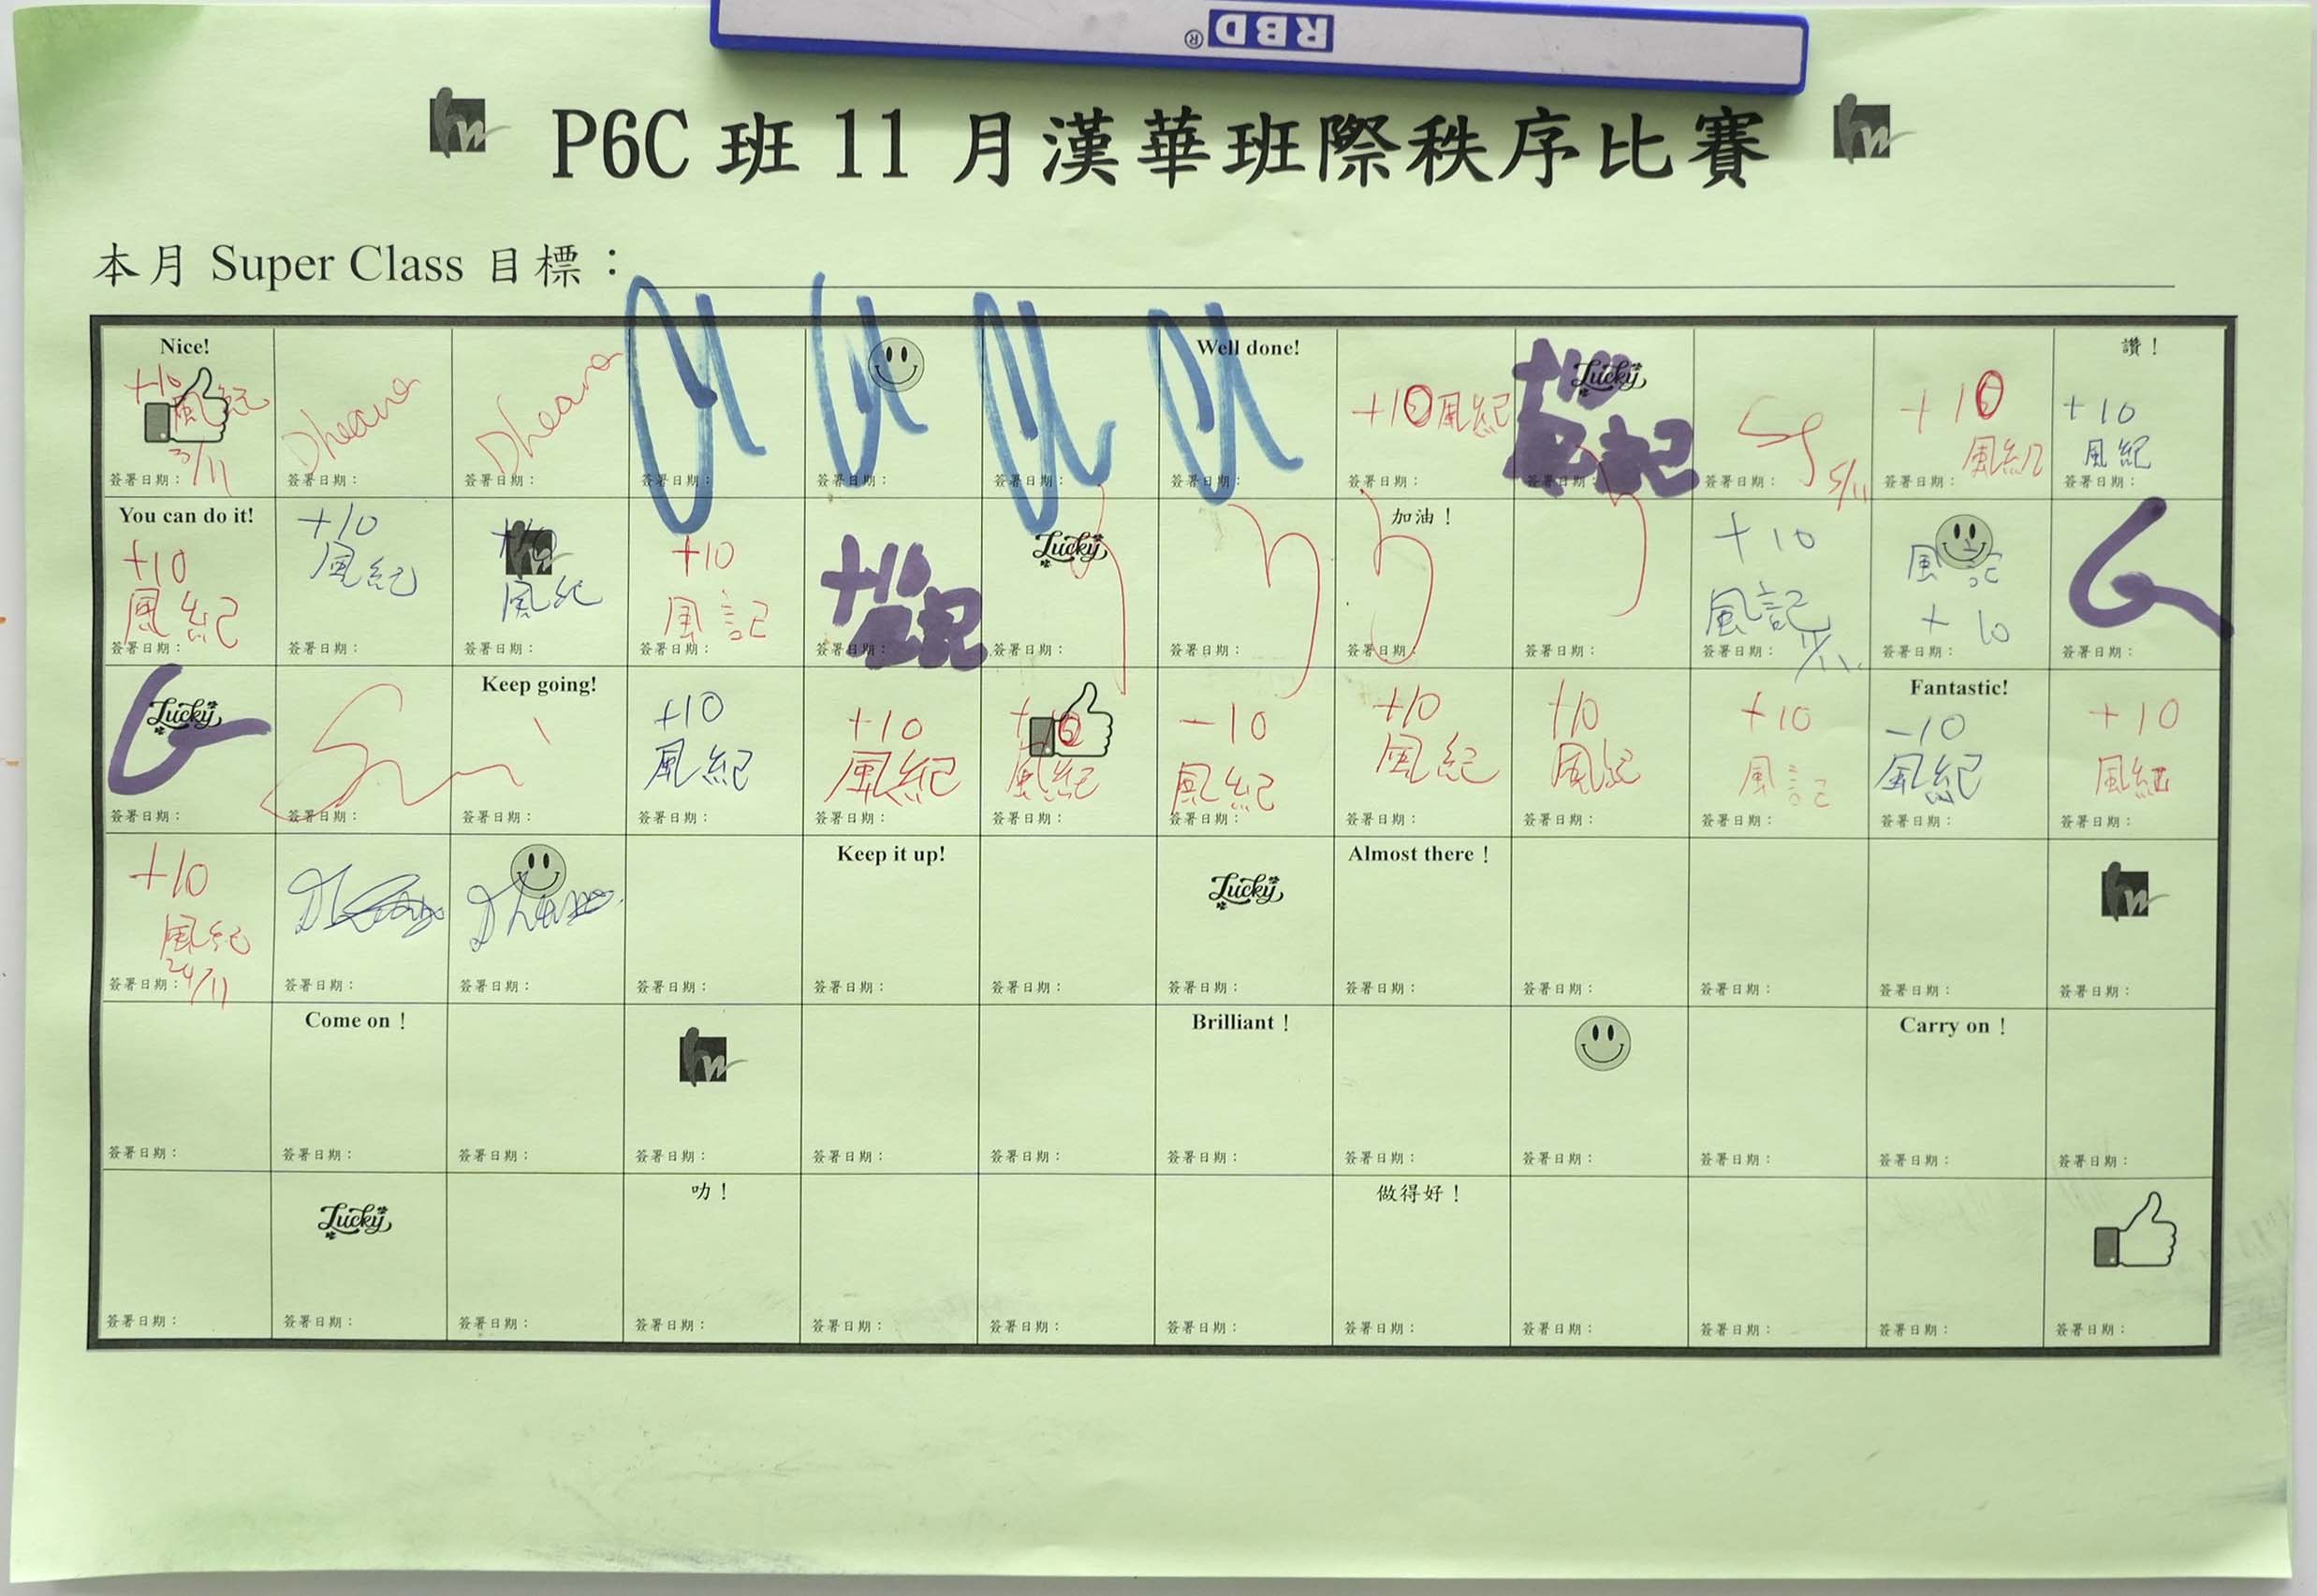 RBD®
P6C 班 11 月漢華班際秩序比賽
本月 Super Class 目標：
Nice! Well done! 讚！
+10 風紀 Dheana Dheana +10 風紀 +10 Lucky 風記 +10 風紀 +10 風紀
3/11 5/11
簽署日期： 簽署日期： 簽署日期： 簽署日期： 簽署日期： 簽署日期： 簽署日期： 簽署日期： 簽署日期： 簽署日期： 簽署日期： 簽署日期：
You can do it! 加油！
+10 +10 +10 +10 +10 Lucky +10
風紀 風紀 風紀 風記 風記 風記
+10
簽署日期： 簽署日期： 簽署日期： 簽署日期： 簽署日期： 簽署日期： 簽署日期： 簽署日期： 簽署日期： 簽署日期： 簽署日期： 簽署日期：
Keep going! Fantastic!
Lucky +10 +10 +10 -10 +10 +10 +10 -10 +10
風紀 風紀 風紀 風紀 風紀 風紀 風記 風紀 風紀
簽署日期： 簽署日期： 簽署日期： 簽署日期： 簽署日期： 簽署日期： 簽署日期： 簽署日期： 簽署日期： 簽署日期： 簽署日期： 簽署日期：
Keep it up! Almost there！
+10 Lucky
風紀
24/11
簽署日期： 簽署日期： 簽署日期： 簽署日期： 簽署日期： 簽署日期： 簽署日期： 簽署日期： 簽署日期： 簽署日期： 簽署日期： 簽署日期：
Come on！ Brilliant！ Carry on！
簽署日期： 簽署日期： 簽署日期： 簽署日期： 簽署日期： 簽署日期： 簽署日期： 簽署日期： 簽署日期： 簽署日期： 簽署日期： 簽署日期：
叻！ 做得好！
Lucky
簽署日期： 簽署日期： 簽署日期： 簽署日期： 簽署日期： 簽署日期： 簽署日期： 簽署日期： 簽署日期： 簽署日期： 簽署日期： 簽署日期：